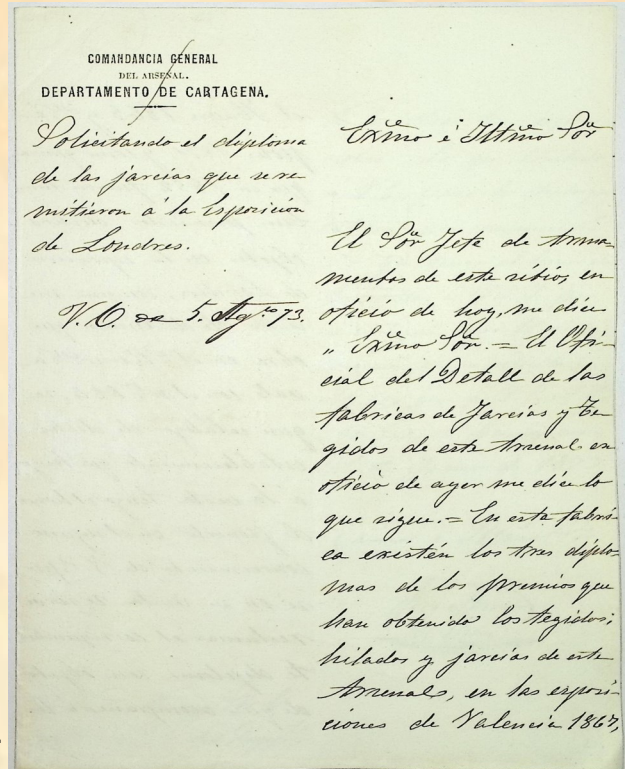 COMANDANCIA GENERAL
DEL ARSENAL.
DEPARTAMENTO DE CARTAGENA.
Solicitando el diploma
de las jarcias que se re
mitieron á la Esposicion
de Londres.
V. O. de 5. Agto 73.
Excmo é Iltmo Sor
El Sor Jefe de Arma-
mentos de este sitio, en
oficio de hoy, me dice
" Excmo Sor. = El Ofi-
cial del Detall de las
fabricas de Jarcias y te-
gidos de este Arsenal en
oficio de ayer me dice lo
que sigue. = En esta fabri-
ca existén los tres diplo-
mas de los premios que
han obtenido los tegidos,
hilados y jarcias de este
Arsenal, en las esposi-
ciones de Valencia 1867,